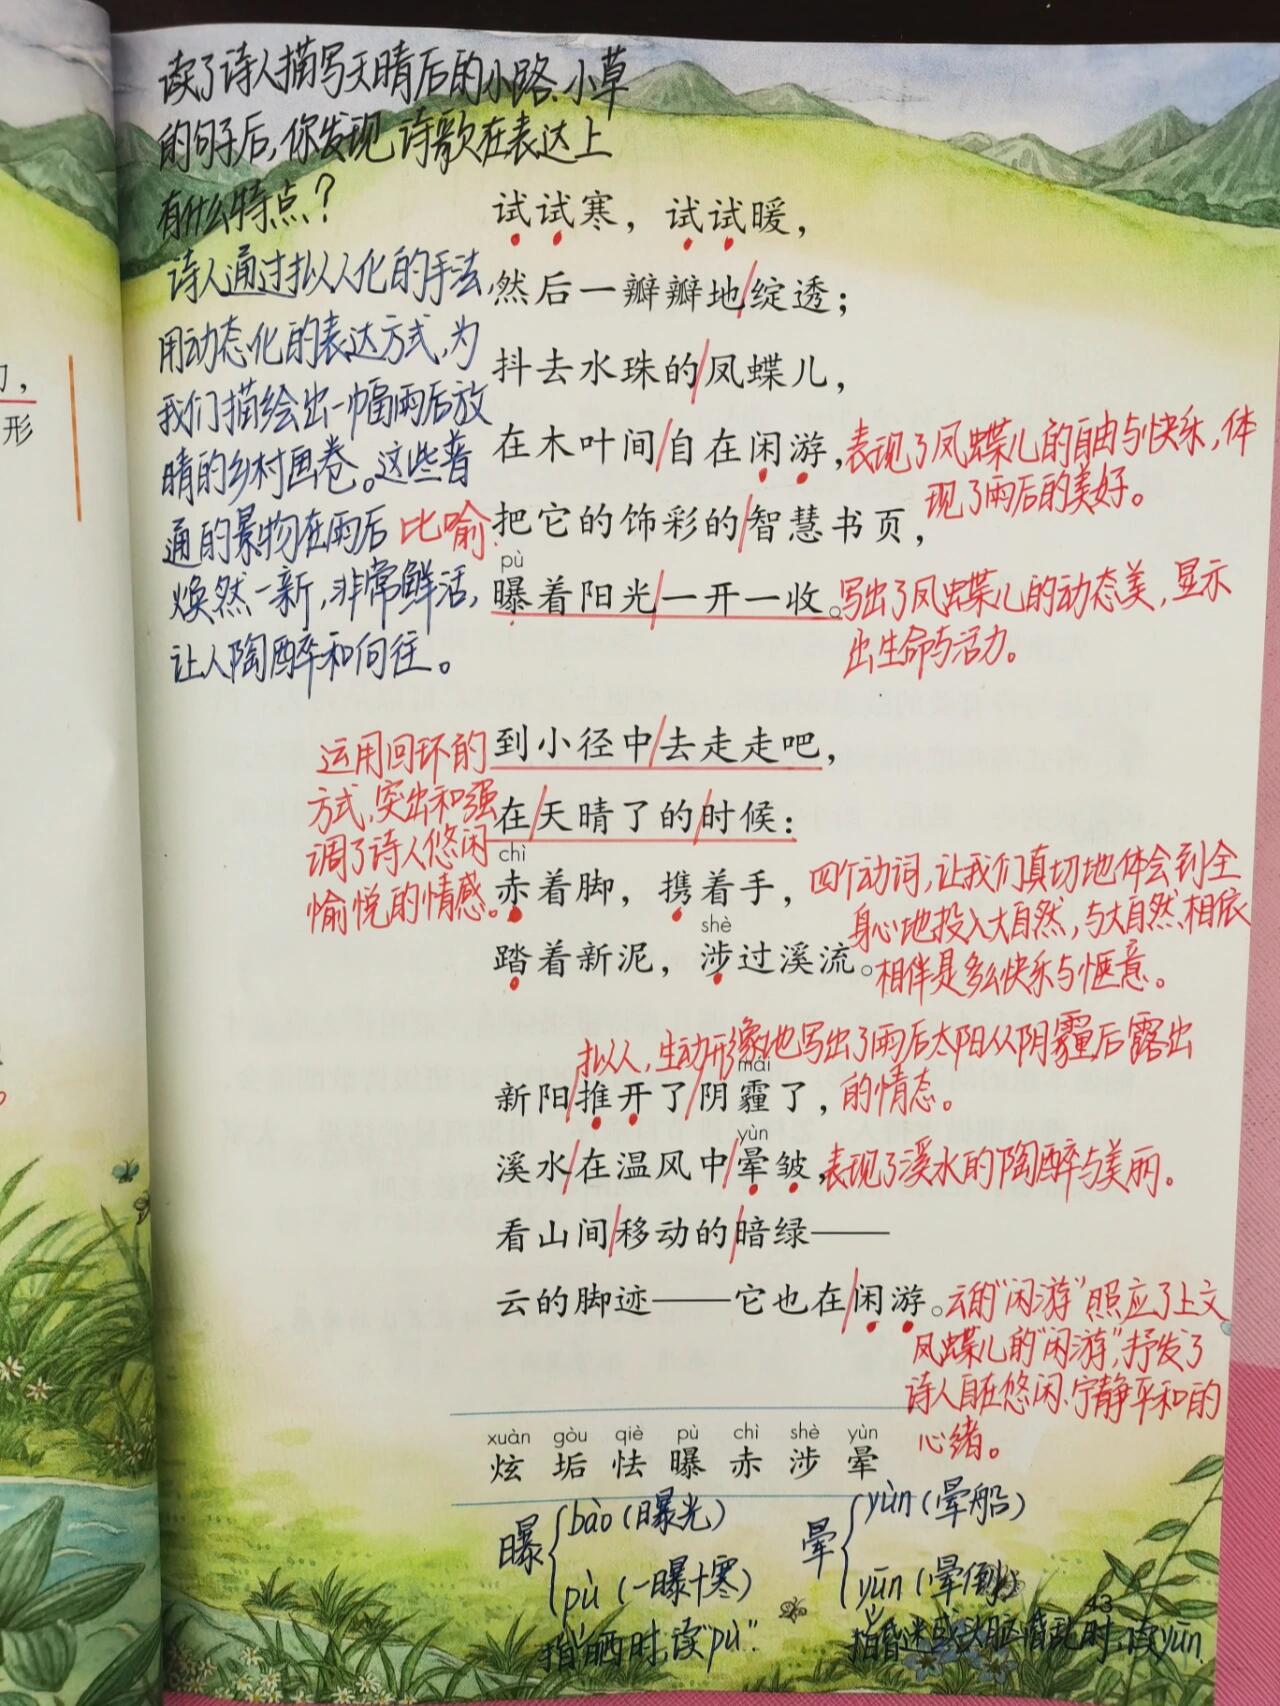 读了诗人描写天晴后的小路、小草
的句子后，你发现诗歌在表达上
有什么特点？
诗人通过拟人化的手法，
用动态化的表达方式，为
我们描绘出一幅雨后放
晴的乡村画卷。这些普
通的景物在雨后
焕然一新，非常鲜活，
让人陶醉和向往。
形
试试寒，试试暖，
然后一瓣瓣地/绽透；
抖去水珠的/凤蝶儿，
在木叶间/自在闲游，
表现了凤蝶儿的自由与快乐，体
现了雨后的美好。
比喻
把它的饰彩的/智慧书页，
pù
曝着阳光/一开一收。
写出了凤蝶儿的动态美，显示
出生命与活力。
运用回环的
方式，突出和强
调了诗人悠闲
愉悦的情感。
到小径中/去走走吧，
在/天晴了的/时候：
chì
赤着脚，携着手，
shè
踏着新泥，涉过溪流。
四个动词，让我们真切地体会到全
身心地投入大自然，与大自然相依
相伴是多么快乐与惬意。
拟人，生动形象地写出了雨后太阳从阴霾后露出
的情态。
mái
新阳/推开了/阴霾了，
yùn
溪水/在温风中/晕皱，
表现了溪水的陶醉与美丽。
看山间/移动的/暗绿——
云的脚迹——它也在/闲游。
云的“闲游”照应了上文
凤蝶儿的“闲游”，抒发了
诗人自在悠闲、宁静平和的
心绪。
xuàn gòu qiè pù chì shè yùn
炫 垢 怯 曝 赤 涉 晕
曝
bào（曝光）
pù（一曝十寒）
指晒时，读“pù”.
晕
yùn（晕船）
yūn（晕倒）
43
指昏迷或头脑昏乱时，读yūn